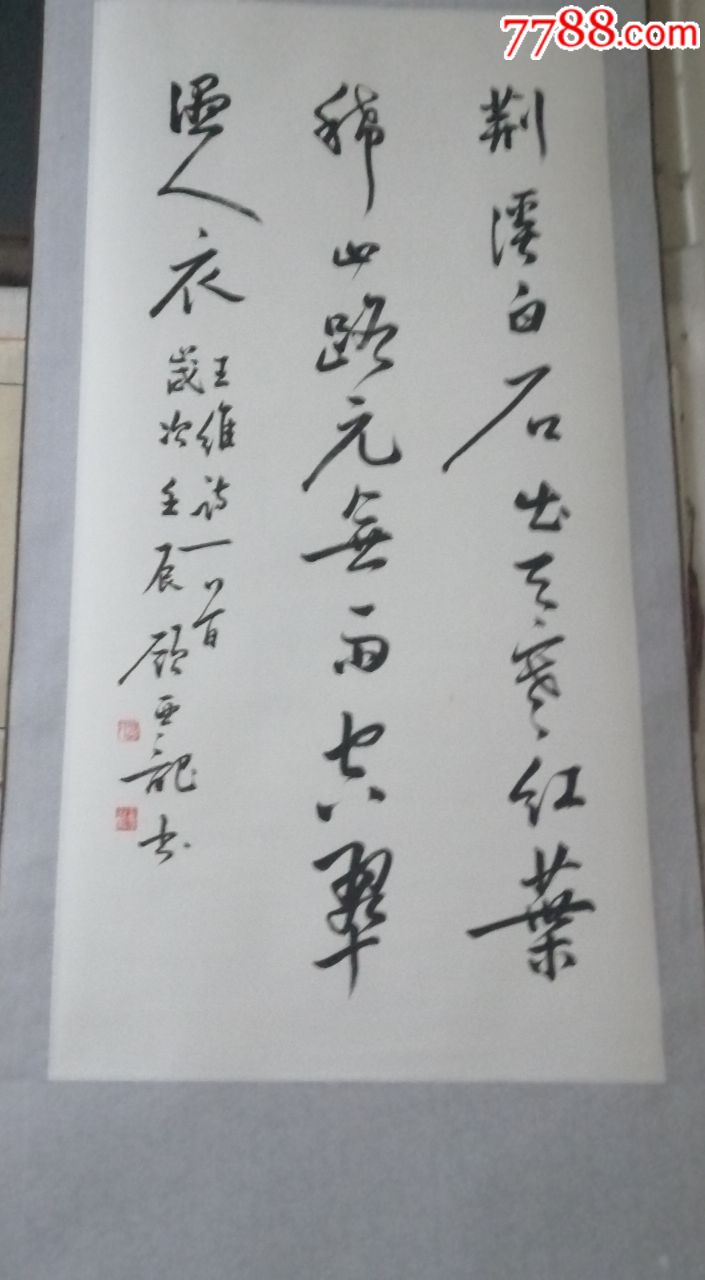 7788.com
荆溪白石出天寒红葉
稀山路元無雨空翠
湿人衣
王维诗一首
歲次壬辰顾亚龍书